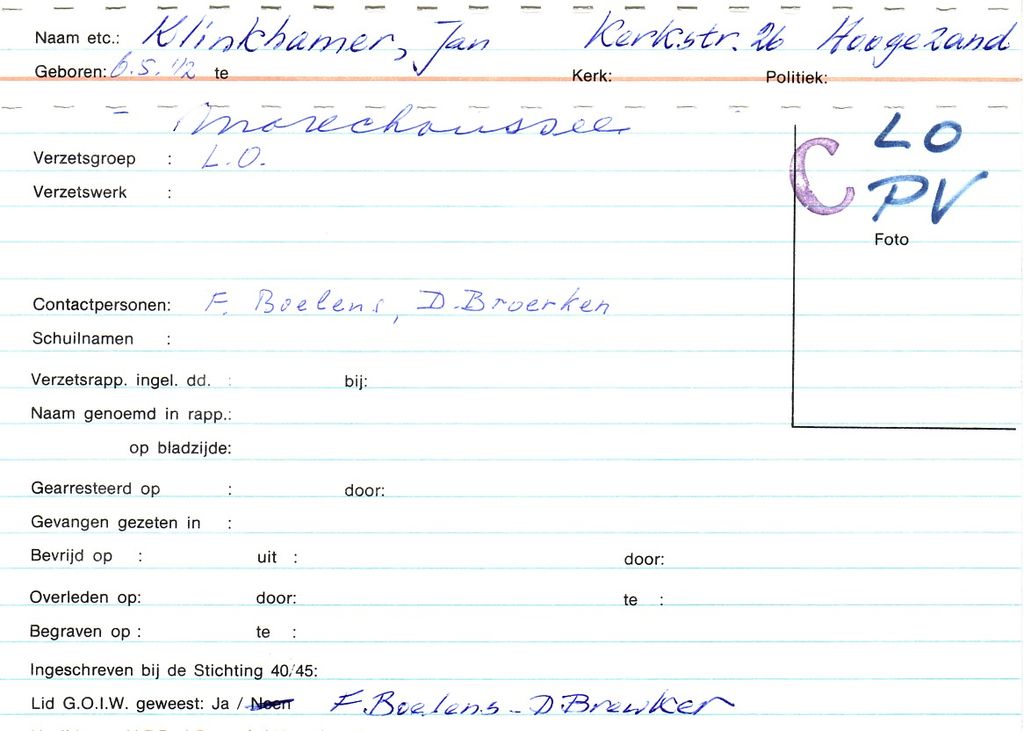 Naam etc.: Klinkhamer, Jan Kerkstr. 26 Hoogezand
Geboren: 6.5.'12 te Kerk: Politiek:
Marechaussee
LO
Verzetsgroep : L.O.
C
Verzetswerk :
PV
Foto
Contactpersonen: F. Boelens, D. Broerken
Schuilnamen :
Verzetsrapp. ingel. dd. : bij:
Naam genoemd in rapp.:
op bladzijde:
Gearresteerd op : door:
Gevangen gezeten in :
Bevrijd op : uit : door:
Overleden op: door: te :
Begraven op : te :
Ingeschreven bij de Stichting 40/45:
Lid G.O.I.W. geweest: Ja / Neen F. Boelens - D. Brewker